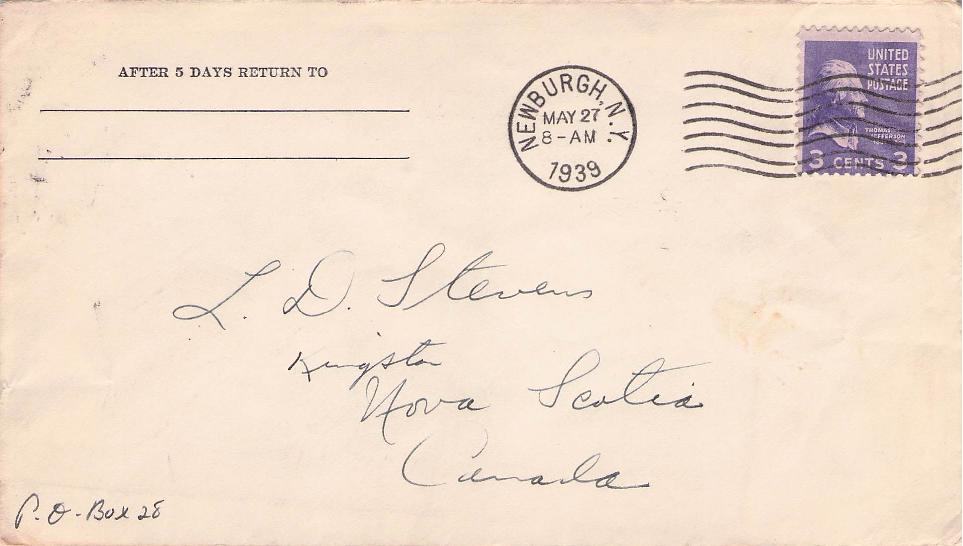 AFTER 5 DAYS RETURN TO
NEWBURGH, N.Y.
MAY 27
8-AM
1939
UNITED
STATES
POSTAGE
THOMAS
JEFFERSON
3 CENTS 3
L. D. Stevens
Kingston
Nova Scotia
Canada
P.O. Box 28